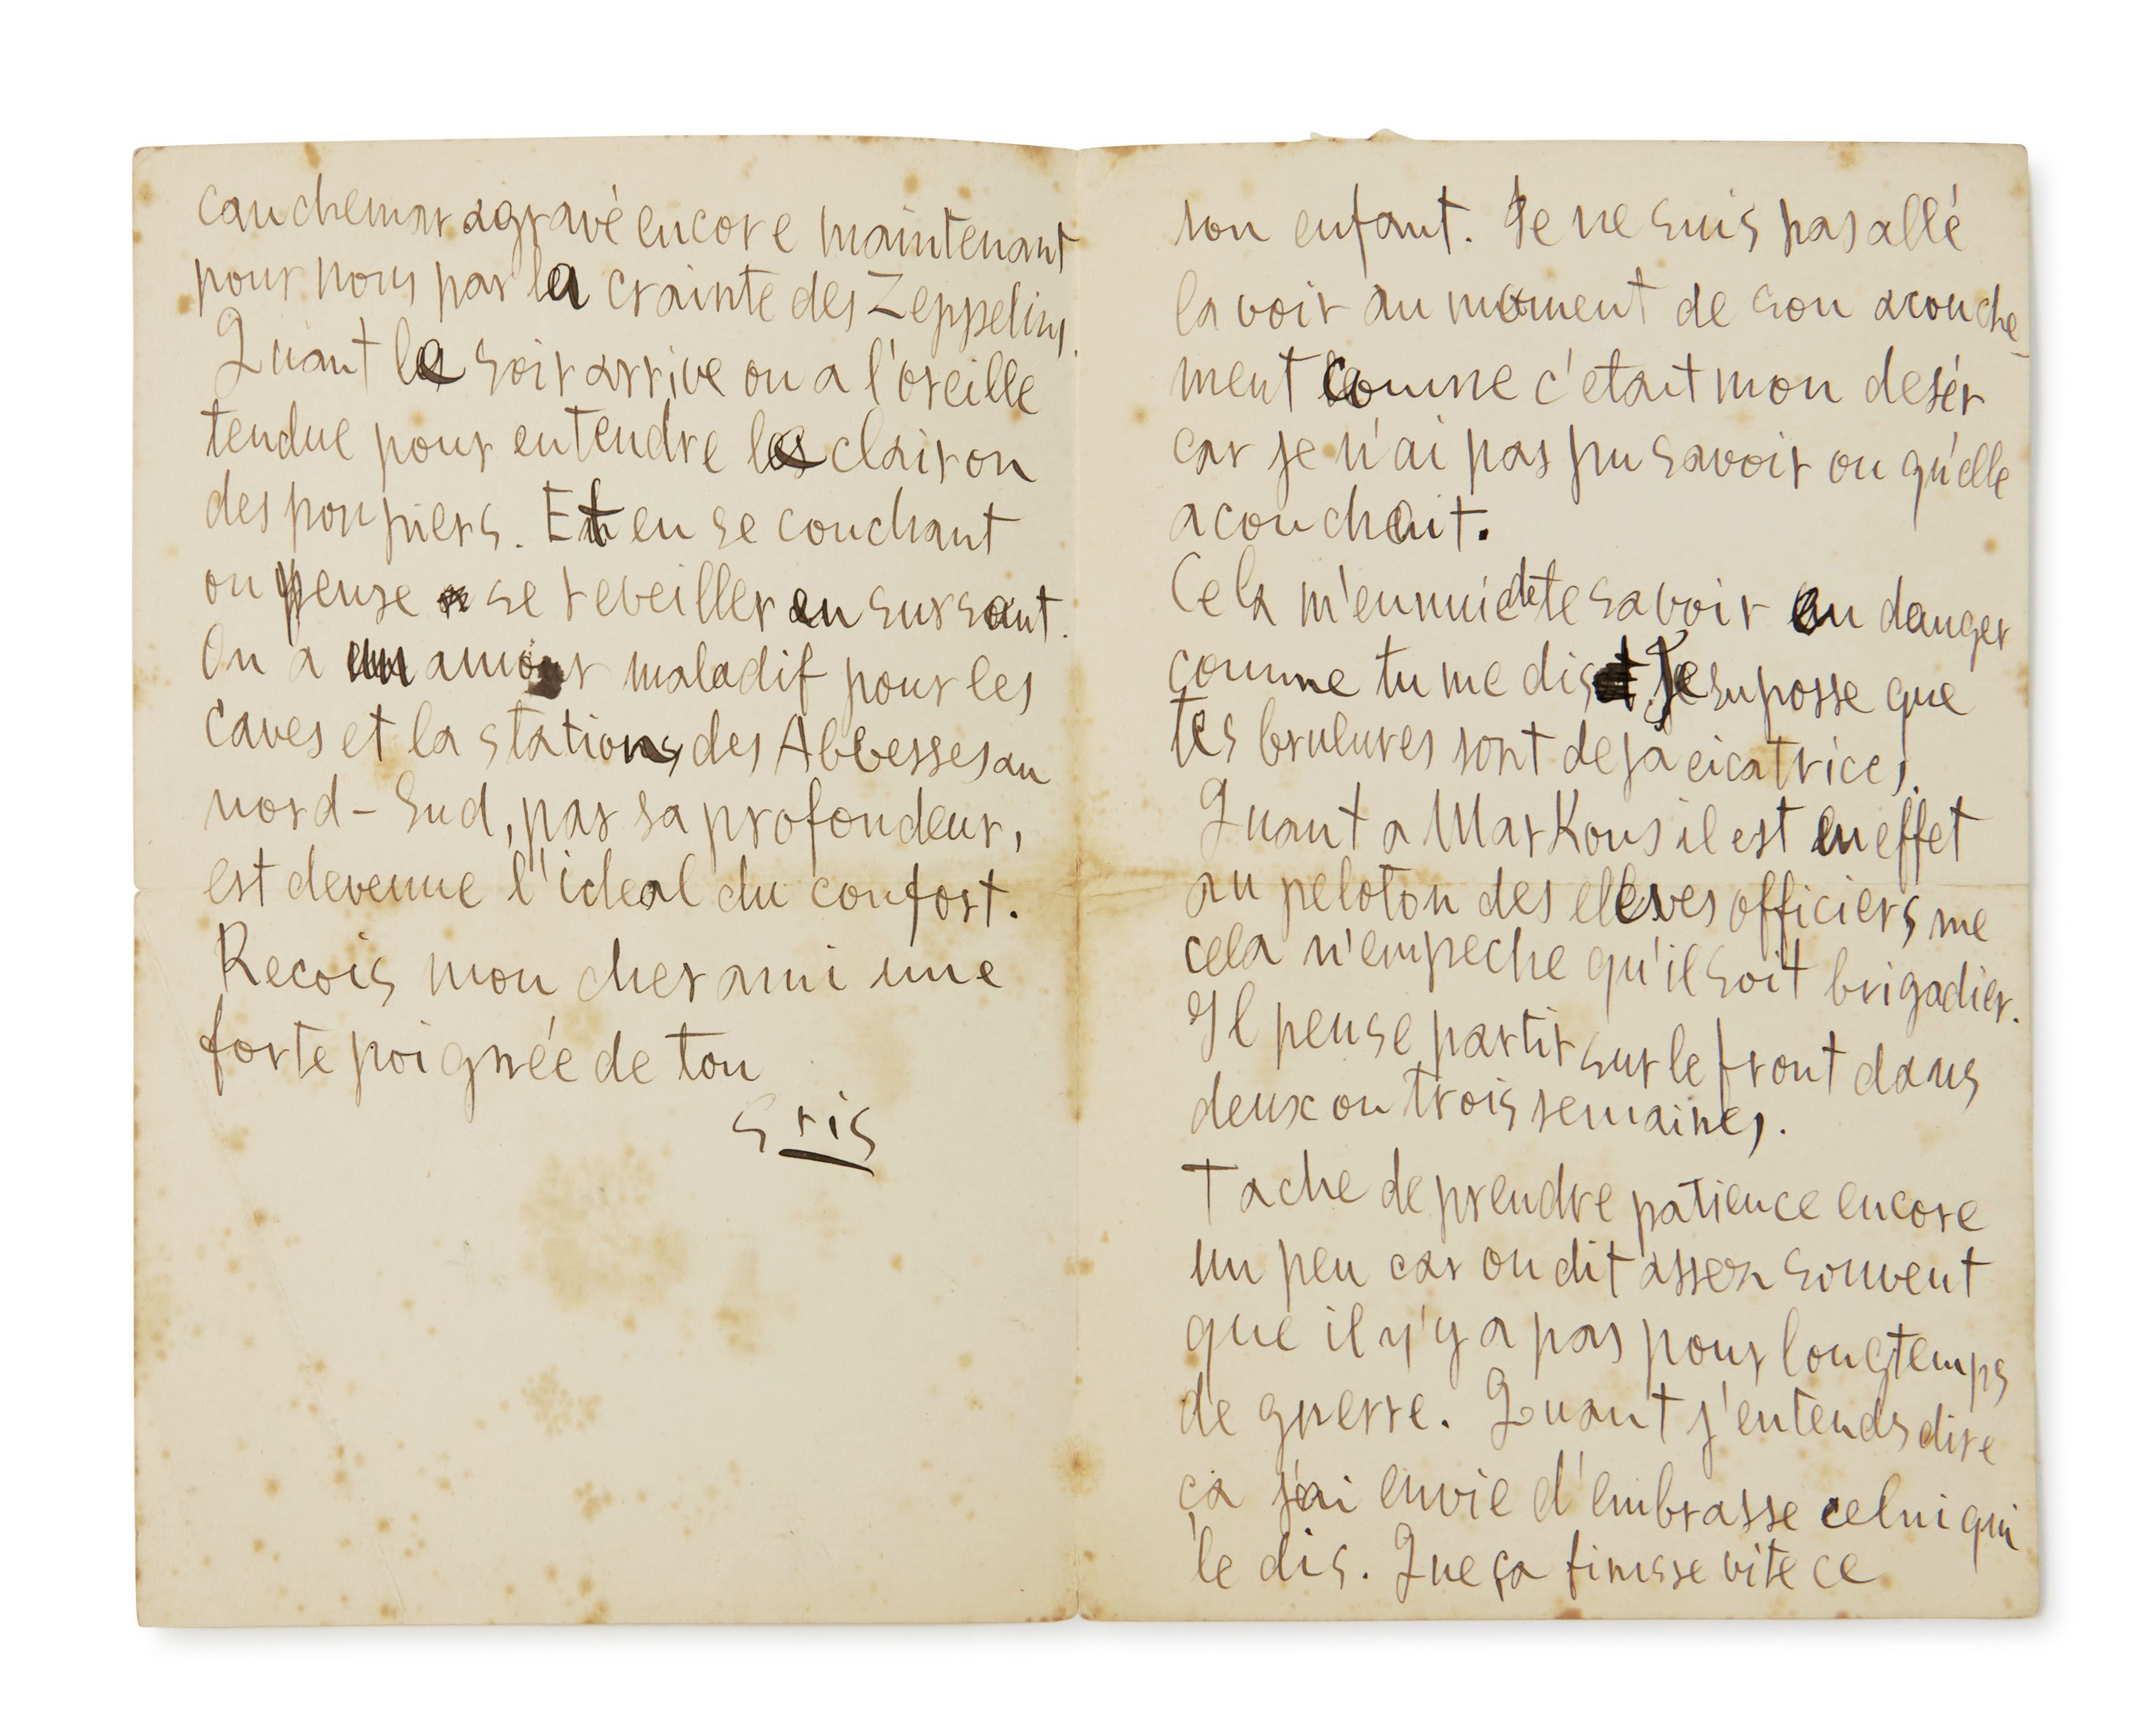 cauchemar agravé encore maintenant
pour nous par la crainte des Zeppelins.
Quant le soir arrive on a l'oreille
tendue pour entendre les clairon
des pompiers. Et en se couchant
on pense se reveiller en sursaut.
On a un amour maladif pour les
caves et la stations des Abbesses au
nord-Sud, par sa profondeur,
est devenue l'ideal du confort.
Recois mon cher ami une
forte poignée de ton
Gris
son enfant. Je ne suis pas allé
la voir au moment de son acouche-
ment comme c'etait mon desir
car je n'ai pas pu savoir ou qu'elle
acouchait.
Cela m'ennuie de te savoir en danger
comme tu me dis. Je suposse que
tes brulures sont deja cicatrices.
Quant a Markous il est en effet
au peloton des eleves officiers me
cela n'empeche qu'il soit brigadier.
Il pense partir sur le front dans
deux ou trois semaines.
Tache de prendre patience encore
un peu car on dit assez souvent
que il n'y a pas pour longtemps
de guerre. Quant j'entends dire
ça j'ai envie d'embrasse celui qui
le dis. Que ça finisse vite ce